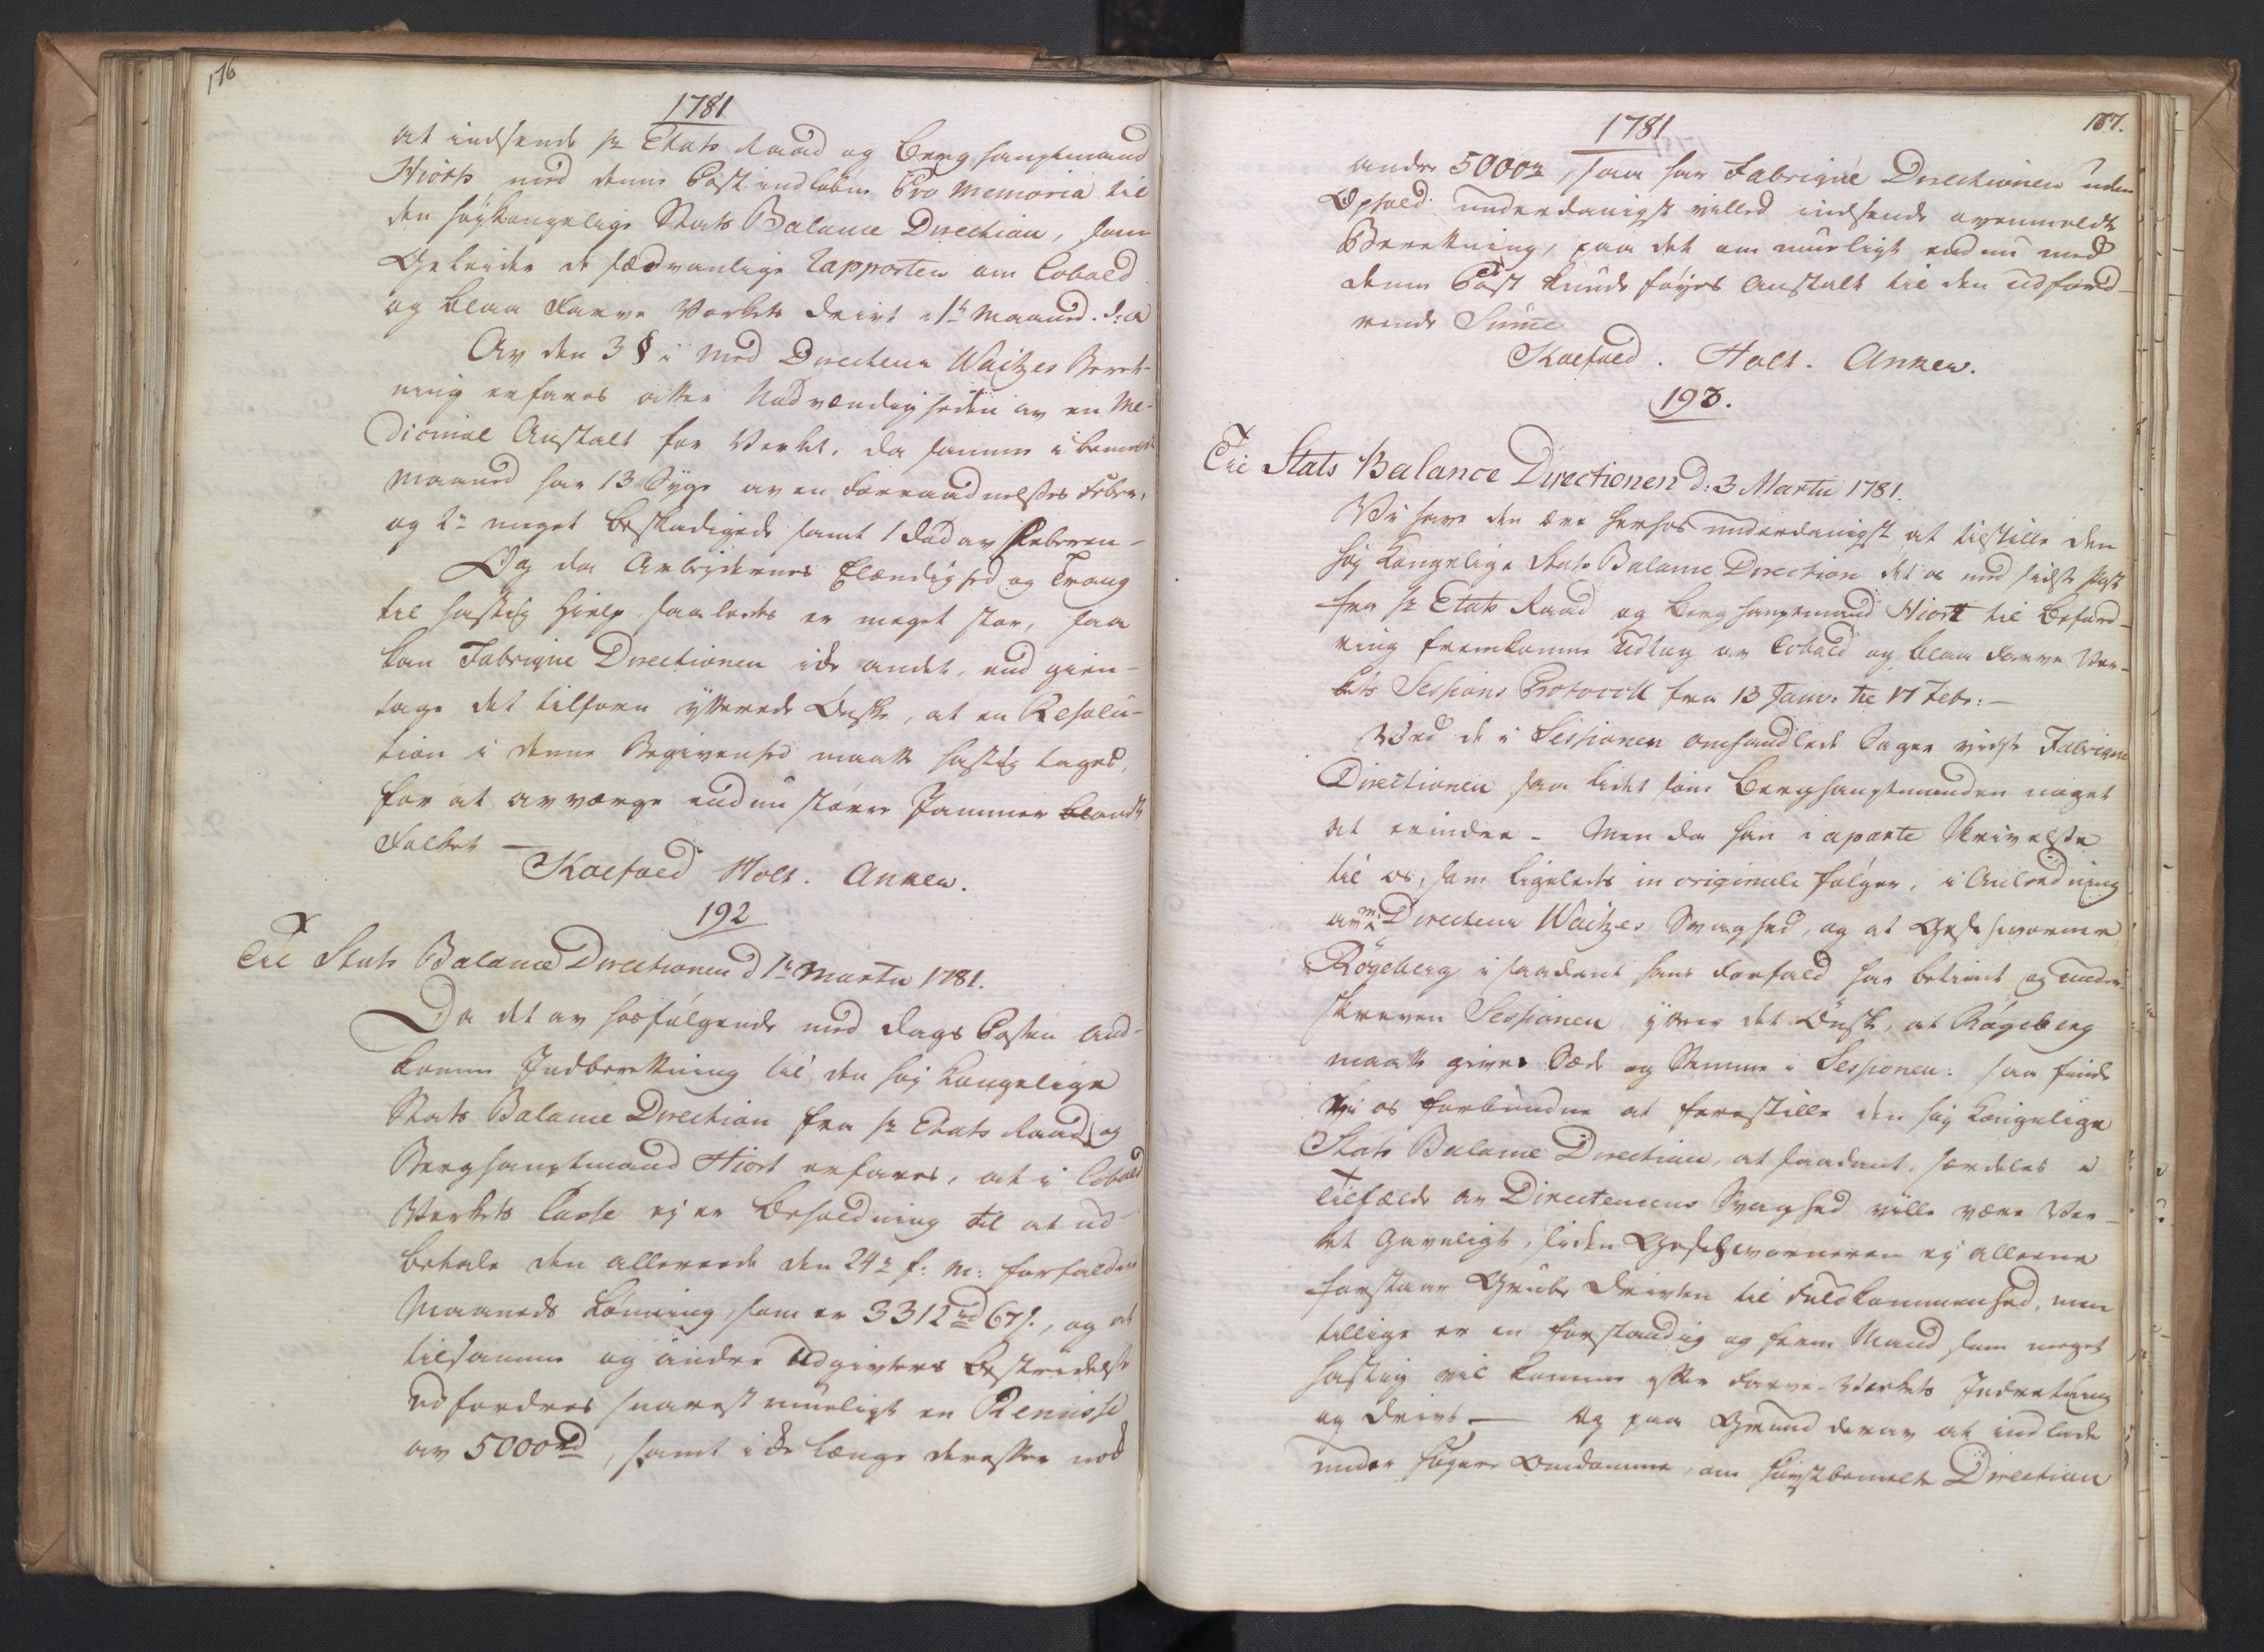 176
1781
at indsende Hr Etats Raad og Berg Hauptmand
Hiorts med denne Post indløbne Pro Memoria til
den høykongelige Stats Balance Direction, som
Geleider de sædvanlige Rapporter om Cobold
og blaa Farve Værkets Drivt i 1te Maaned. d: A
Av den 3 § i Med Directeur Waitzes Beret-
ning erfares atter Nødvændigheden av en Me-
dicinal Anstalt for Verket, da samme i bemelte
Maaned har 13 Syge av en Forraadnelses Feber,
og 2de meget beskadigede samt 1 død av Feberen -
Og da Arbejdernes Elændighed og Trang
til hastig Hielp saaledes er meget stor, saa
kan Fabrique Directionen icke andet, end gien-
tage det tilforn ytterede Ønske, at en Resolu-
tion i denne Begivenhed maatte hastig tages,
for at avværge endnu større Jammer blandt
Folket —
Koefoed Holt. Anker.
192
Til Stats Balance Directionen d 1te Martii 1781.
Da det av hosfølgende med Dags Posten and-
komne Indberetning til den høy Kongelige
Stats Balance Direction fra Hr Etats Raad og
Berghauptmand Hiort erfares, at i Cobold
Verkets Casse ej er Beholdning til at ud-
betale den allereede den 24de f: M: forfaldne
Maaneds Lønning, som er 3312 rd 67 s., og at
tilsamme og andre Udgivters Bestridelse
udfordres snarest mueligt en Remisse
av 5000 rd, samt icke længe derefter nok
177.
1781
andre 5000 rd, saa har Fabrique Directionen uden
Ophold underdanigst villed indsende ovenmeldte
Beretning, paa det om mueligt endnu med
denne Post kunde føyes Anstalt til den udford-
rende Summe
Koefoed. Holt. Anker.
193.
Til Stats Balance Directionen d: 3 Martii 1781.
Vi have den ære herhos underdanigst at tilstille den
høy Kongelige Stats Balance Direction det os med sidste Post
fra Hr Etats Raad og Berg Hauptmand Hiort til Beford-
ring fremkomne Udtog av Cobold og blaa Farve Ver-
kets Sessions Protocoll fra 13 Janv: til 17 Febr: —
Ved de i Sessionen omhandlede Sager vidste Fabrique
Directionen saa lidet som Berghauptmanden noget
at erindre - Men da han i aparte Skrivelse
til os, som ligeledes in originali følger, i Anledning
av M: Directeur Waitzes Svaghed, og at Geschworne
Røgeberg i saadant hans Forfald har betient og under-
skreven Sessionen ytrer det Ønske, at Røgeberg
maatte gives Sæde og Stemme i Sessionen: saa finde
Vi os forbundne at forestille den høy Kongelige
Stats Balance Direction, at saadant, særdeles i
Tilfælde av Directeurens Svaghed ville være Ver-
ket Gavnligt, siden Geschwoerneren ej alleene
forstaar Grube Drivten til Fuldkommenhed, men
tillige er en forstandig og ferm Mand som meget
hastig vil komme efter Farve-Verkets Indretning
og Drivt — Og paa Grund derav at indlade
under høyere Omdømme, om høystbemelte Direction